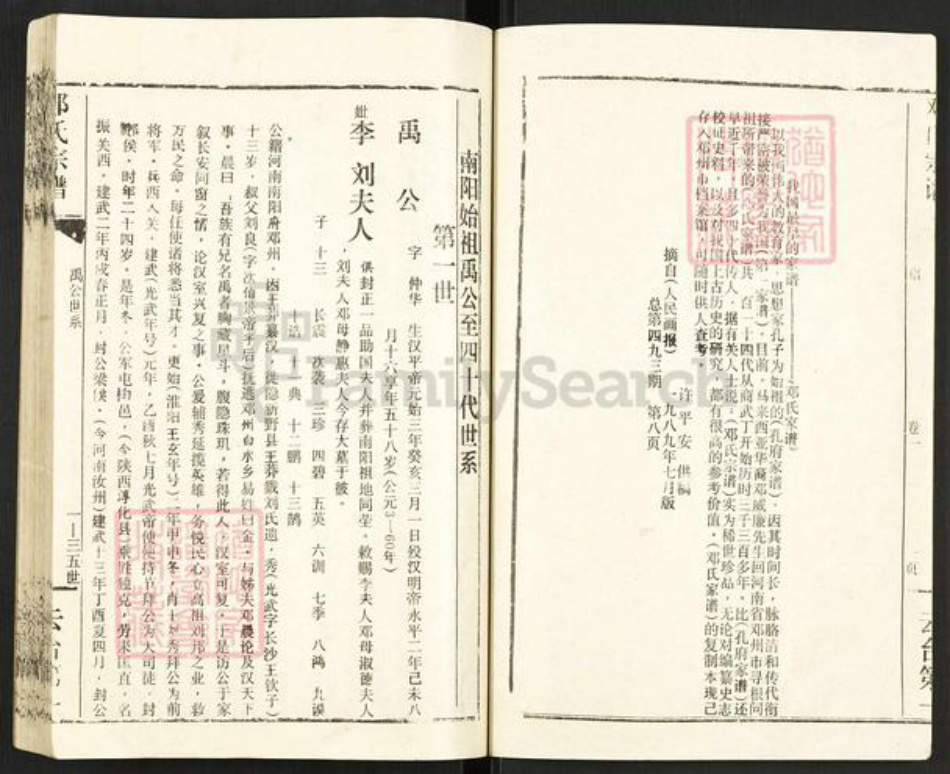 我国最早的家谱——邓氏家谱
以我国伟大的教育家、思想家孔子为始祖的《孔府家谱》，因其时间长，脉胳清和传代衔
接严密被荣誉为我国《第一家谱》。目前，马来西亚华裔邓威廉先生回河南省邓州市寻根问
祖所带来的《邓氏家谱》共一百一十四代从商武丁开始历时三千三百多年，比《孔府家谱》还
早近千年，且多四十代传人，据有关人士说：《邓氏宗谱》实为稀世珍品，无论对编纂史志
校证史料，以及对我国上古历史的研究，都有很高的参考价值。《邓氏家谱》的复制本现已
存入邓州市档案馆，可随时供人查考。
许平安 供稿
摘自《人民画报》一九八九年七月版
总第四九三期 第八页
卷一
南阳始祖禹公至四十代世系
第一世
禹公 字 仲华 生汉平帝元始三年癸亥三月一日殁汉明帝永平二年己未八
月十六享年五十八岁（公元3—60年）
妣李 刘夫人 俱封正一品助国夫人并葬南阳祖地同茔，敕赐李夫人邓母淑德夫人
，刘夫人邓母静惠夫人今存大墓于彼。
子 十三 长震 次袭 三珍 四碧 五英 六训 七季 八鸿 九谟
十浩 十一典 十二鹏 十三鹄
公籍河南南阳府邓州，因王莽纂汉，徙隐新野县王莽戮刘氏遗，秀（光武字长沙王钦子）
十三岁，叔父刘良（字次伯景帝子后）抚逃邓州白水乡易姓曰金，与姊夫邓晨论及汉天下
事，晨曰：吾族有兄名禹者胸藏星斗，腹隐珠玑，若得此人，汉室可复，于是访公于家
叙长安同窗之情，论汉室兴复之事，公爱辅秀延揽英雄，务悦民心立高祖刘邦之业，救
万民之命，每任使诸将悉当其才，更始（淮阳王玄年号）二年甲申冬，肖王刘秀拜公为前
将军，兵西入关，建武（光武年号）元年，乙酉秋七月光武帝使使持节拜公为大司徒，封
酂侯，时年二十四岁，是年冬，公军屯栒邑，（今陕西淳化县）乘胜独克，劳来匡直，名
振关西，建武二年丙戌春正月，封公梁侯，（今河南汝州）建武十三年丁酉夏四月，封公
邓氏宗谱
禹公世系
一—三五世
FamilySearch